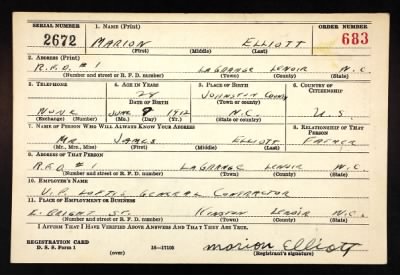 SERIAL NUMBER 1. NAME (Print) ORDER NUMBER
2672 MARION ELLIOTT 683
(First) (Middle) (Last)
2. ADDRESS (Print)
R.F.D. #1 LAGRANGE LENOIR N.C.
(Number and street or R. F. D. number) (Town) (County) (State)
3. TELEPHONE 4. AGE IN YEARS 5. PLACE OF BIRTH 6. COUNTRY OF CITIZENSHIP
28 JOHNSTON COUNTY
DATE OF BIRTH (Town or county)
NONE JUNE 9 1912 N.C. U.S.
(Exchange) (Number) (Mo.) (Day) (Yr.) (State or country)
7. NAME OF PERSON WHO WILL ALWAYS KNOW YOUR ADDRESS 8. RELATIONSHIP OF THAT PERSON
MR. JAMES ELLIOTT FATHER
(Mr., Mrs., Miss) (First) (Middle) (Last)
9. ADDRESS OF THAT PERSON
R.F.D #1 LAGRANGE LENOIR N.C.
(Number and street or R. F. D. number) (Town) (County) (State)
10. EMPLOYER'S NAME
V.P. LOFTIS GENERAL CONTRACTOR
11. PLACE OF EMPLOYMENT OR BUSINESS
E. BRIGHT ST. KINSTON LENOIR N.C.
(Number and street or R. F. D. number) (Town) (County) (State)
I AFFIRM THAT I HAVE VERIFIED ABOVE ANSWERS AND THAT THEY ARE TRUE.
REGISTRATION CARD
D. S. S. Form 1 (over) 16—17105 Marion Elliott
(Registrant's signature)